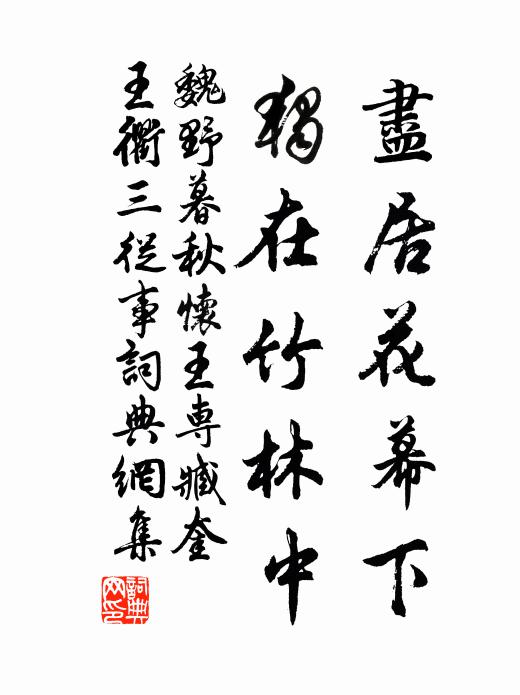 盡居花幕下
獨在竹林中
魏野暮秋懷王專臧奎
王衢三從事詞典網集
詞典网印